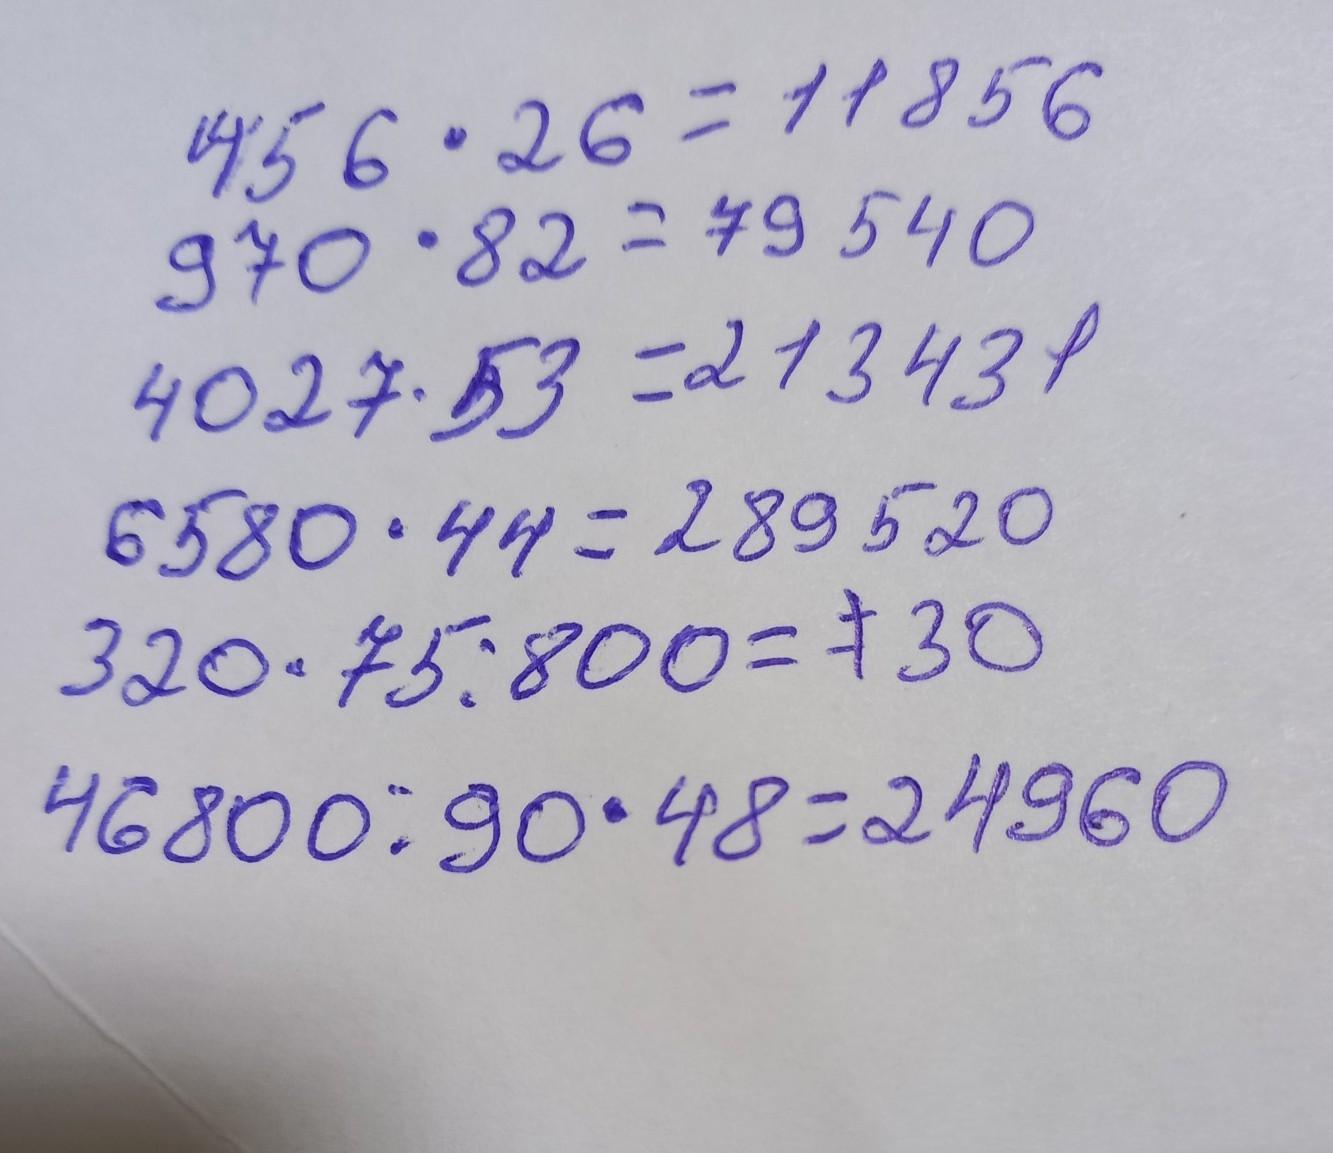 456 · 26 = 11856
970 · 82 = 79540
4027 · 53 = 213431
6580 · 44 = 289520
320 · 75 : 800 = +30
46800 : 90 · 48 = 24960